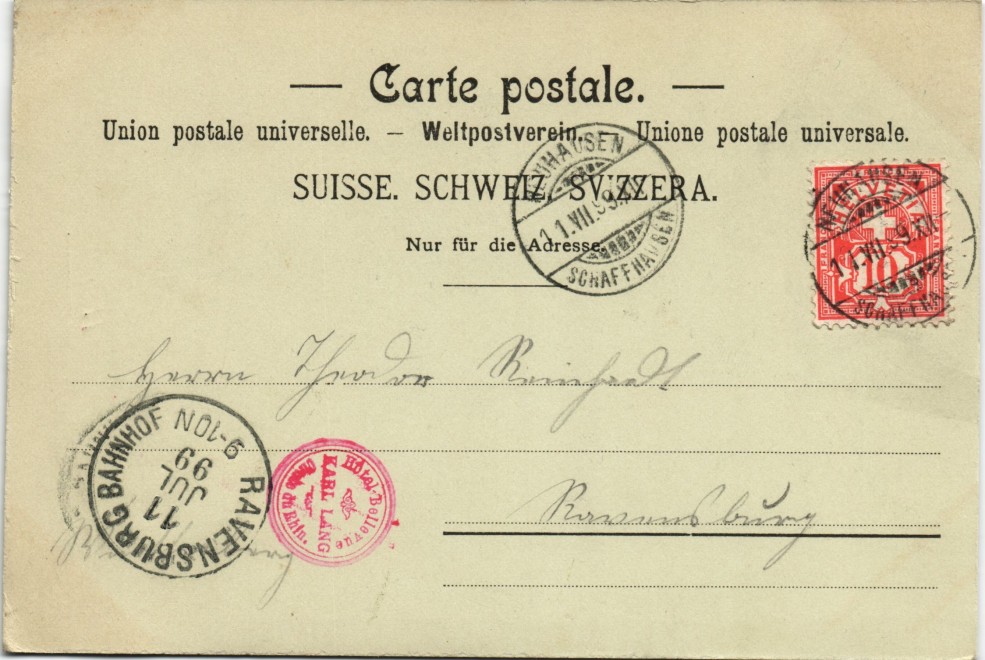 — Carte postale. —
Union postale universelle. — Weltpostverein. — Unione postale universale.
SUISSE. SCHWEIZ. SVIZZERA.
Nur für die Adresse.
NEUHAUSEN
11.VII.99.XII
SCHAFFHAUSEN
NEUHAUSEN
11.VII.99.XII
SCHAFFHAUSEN
HELVETIA
10
Herrn Theodor Reinhardt
Ravensburg
RAVENSBURG BAHNHOF
11
JUL
99
9-10N
Hôtel-Bellevue
KARL LANG
am Rhin.